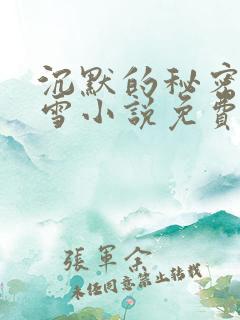 沉默的秘密
雪小說免費
張軍余
未经同意禁止转载